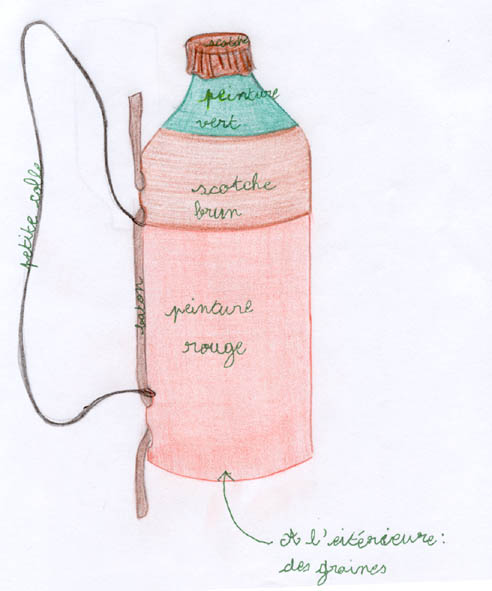 scotche
peinture
vert
scotche
brun
petite colle
baton
peinture
rouge
A l'eitérieure:
des graines